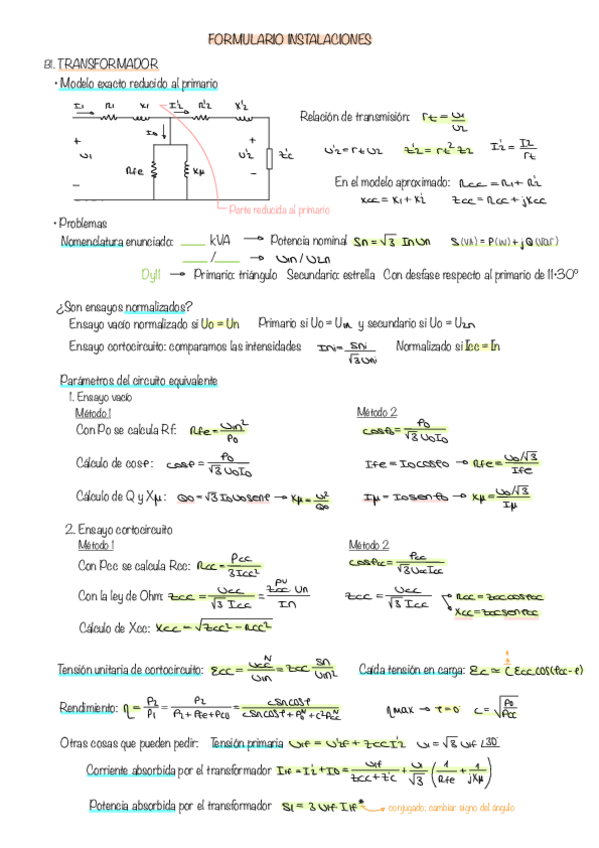 FORMULARIO INSTALACIONES
B1. TRANSFORMADOR
• Modelo exacto reducido al primario
I1 R1 X1 I'2 R'2 X'2
I0
+ U1 − RFe Xμ + U'2 − Z'c
Parte reducida al primario
Relación de transmisión: rt = U1/U2
U'2 = rt U2 Z'2 = rt² Z2 I'2 = I2/rt
En el modelo aproximado: Rcc = R1 + R'2
Xcc = X1 + X'2 Zcc = Rcc + jXcc
• Problemas
Nomenclatura enunciado: ___ kVA → Potencia nominal Sn = √3 In Un S(VA) = P(W) + jQ(VAr)
___ / ___ → U1n / U2n
Dy11 → Primario: triángulo Secundario: estrella Con desfase respecto al primario de 11·30º
¿Son ensayos normalizados?
Ensayo vacío normalizado si Uo = Un Primario si Uo = U1n y secundario si Uo = U2n
Ensayo cortocircuito: comparamos las intensidades Ini = Sni/√3 Uni Normalizado si Icc = In
Parámetros del circuito equivalente
1. Ensayo vacío
Método 1 Método 2
Con Po se calcula Rf: RFe = U1n²/P0 cosφ0 = P0/√3 U0 I0
Cálculo de cosφ: cosφ = P0/√3 U0 I0 IFe = I0 cosφ0 → RFe = U0/√3/IFe
Cálculo de Q y Xμ: Q0 = √3 I0 U0 senφ → Xμ = U²/Q0 Iμ = I0 senφ0 → Xμ = U0/√3/Iμ
2. Ensayo cortocircuito
Método 1 Método 2
Con Pcc se calcula Rcc: Rcc = Pcc/3Icc² cosφcc = Pcc/√3 Ucc Icc
Con la ley de Ohm: Zcc = Ucc/√3 Icc = Zcc^pu Un/In Zcc = Ucc/√3 Icc → Rcc = Zcc cosφcc
Xcc = Zcc senφcc
Cálculo de Xcc: Xcc = √Zcc² − Rcc²
Tensión unitaria de cortocircuito: εcc = Ucc^N/U1n = Zcc Sn/U1n² Caída tensión en carga: εc ≃ C εcc cos(φcc − φ)
Rendimiento: η = P2/P1 = P2/P2 + PFe + Pcu = cSn cosφ/cSn cosφ + P0^N + c²Pcc^N ηmax → φ = 0 C = √P0/Pcc
Otras cosas que pueden pedir: Tensión primaria U1f = U'2f + Zcc I'2 U1 = √3 U1f ∠30
Corriente absorbida por el transformador I1f = I'2 + I0 = U1f/Zcc + Z'c + U1/√3 (1/RFe + 1/jXμ)
Potencia absorbida por el transformador S1 = 3 U1f I1f* → conjugado: cambiar signo del ángulo